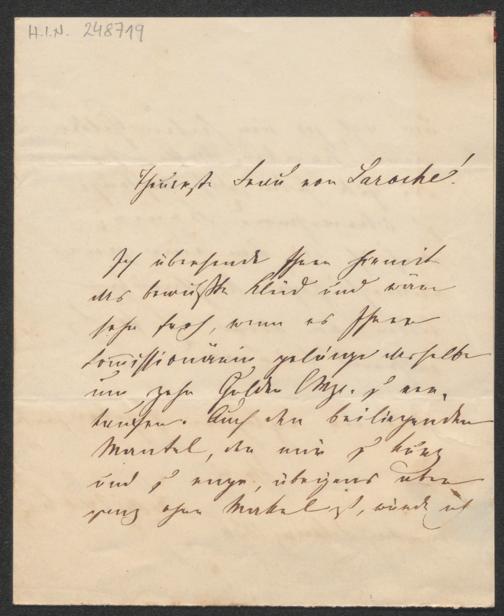 H.I.N. 248719
Theuerste Frau von Laroche!
Ich übersende Ihnen hiemit
das bewußte Kleid und wäre
sehr froh, wenn es Ihrer
Commissionärin gelänge dasselbe
um zehn Gulden CMze. zu ver-
kaufen. Auch den beiliegenden
Mantel, der mir zu kurz
und zu enge, übrigens aber
ganz ohne Makel ist, würde ich